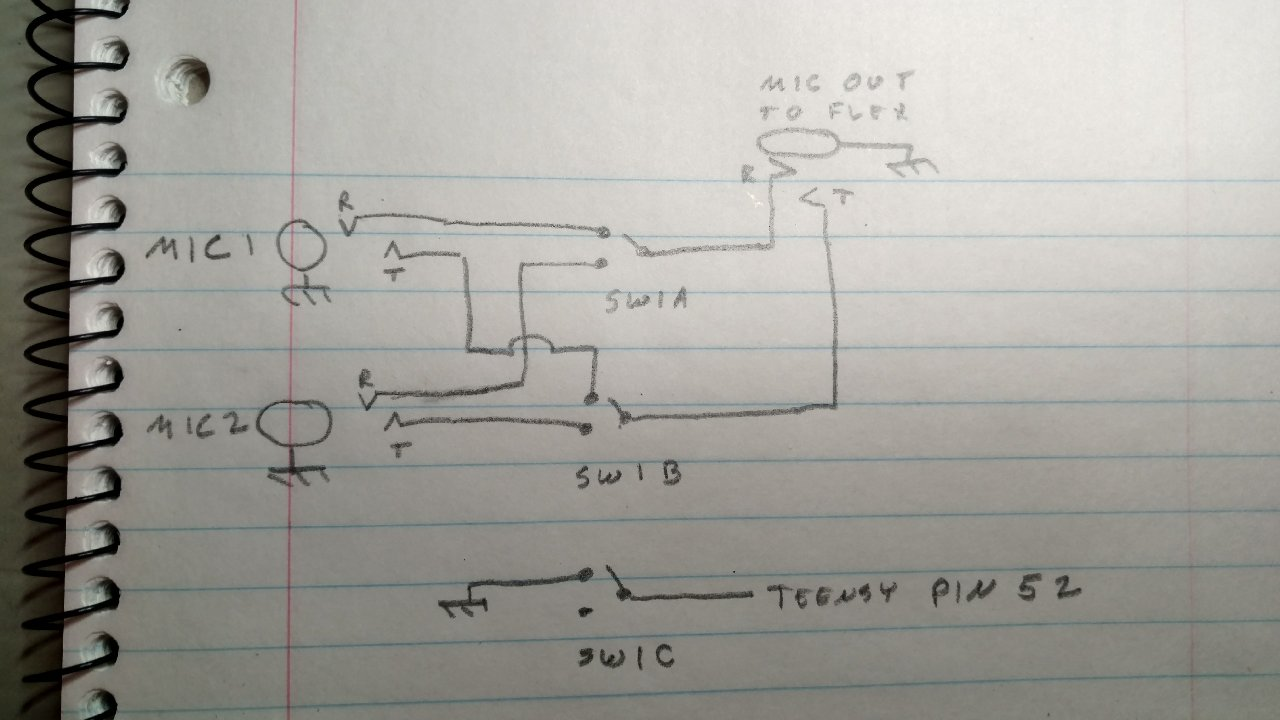 MIC OUT
TO FLEX
R
T
R
MIC 1
T
SW1A
R
MIC 2
T
SW1B
TEENSY PIN 52
SW1C